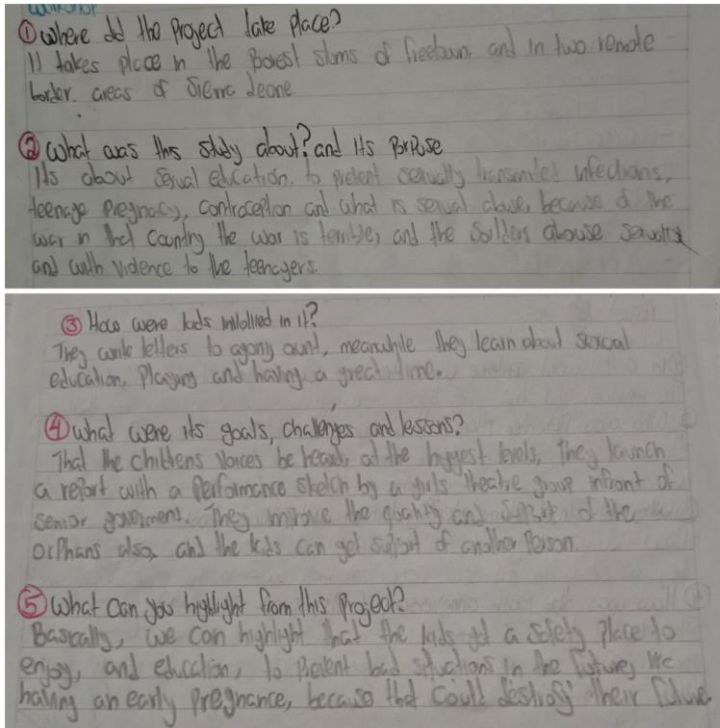 ① Where did the Project take Place?
It takes place in the Porest slums of freetown and in two remote
border areas of Sierra Leone
② What was this study about? and its Porpuse
Its about Sexual education, to prevent sexually transmited infections,
teenage Pregnacy, contraception and what is sexual abuse, because of the
war in that Country the war is terrible, and the Soilders abouse sexualy
and with violence to the teenagers
③ How were kids involved in it?
They write letters to agony aunt, meanwhile they learn about sexual
education, Playing and having a great time.
④ What were its goals, challenges and lessons?
That the childrens voices be heard, at the highest levels, They launch
a report with a Performance sketch by a girls theatre group infront of
senior government. They improve the quality and support of the
orphans also, and the kids can get support of another Person.
⑤ What can you highlight from this Project?
Basically, we can highlight that the kids get a safety Place to
enjoy, and education, to prevent bad situations in the future, like
having an early Pregnance, because that could destroy their future.